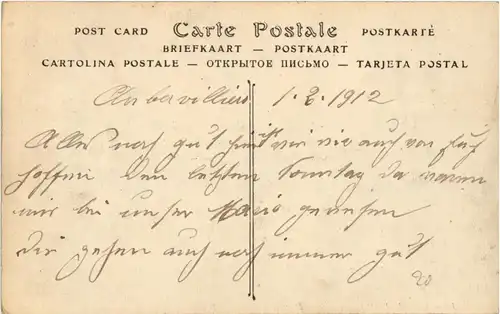 POST CARD Carte Postale POSTKARTE
BRIEFKAART — POSTKAART
CARTOLINA POSTALE — ОТКРЫТОЕ ПИСЬМО — TARJETA POSTAL
Aubavilliers 1.2.1912
Alles noch gut hier ist wir wie auch von Euch
hoffen Den letzten Sonntag da waren
mir bei unser Marie gewesen
Dir gehen auch noch immer gut
20